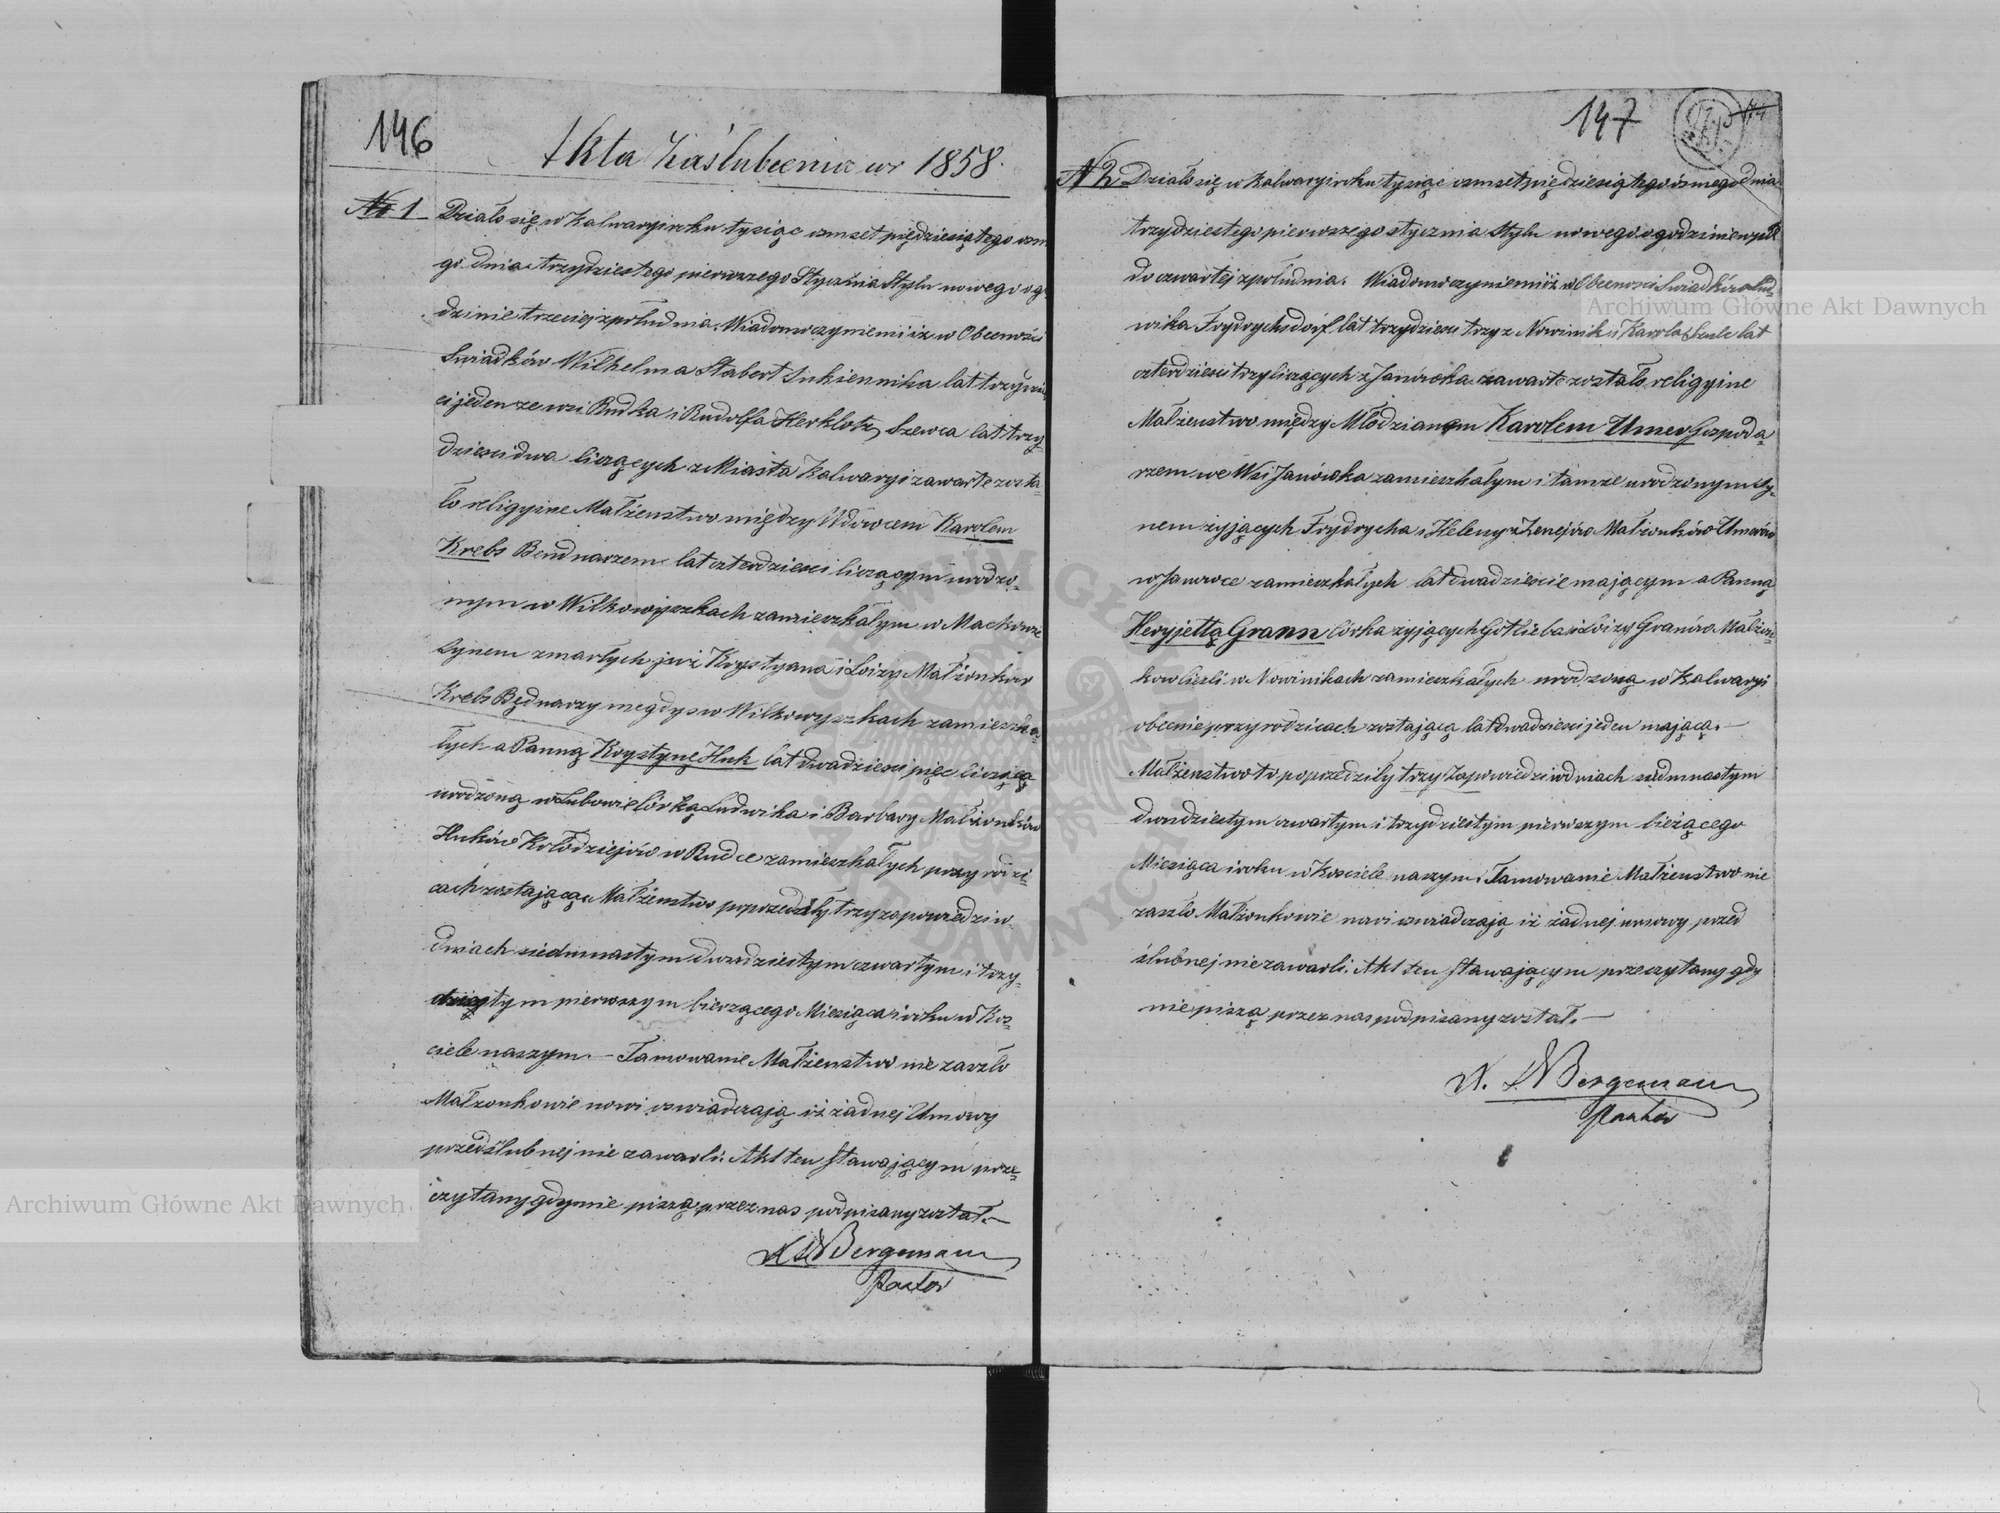 146
Akta Zaślubienia w r 1858.
No 1 Działo się w Kalwaryi roku tysiąc osmset piędziesiątego osm
go dnia trzydziestego pierwszego Stycznia Stylu nowego o go
dzinie trzeciej z południa. Wiadomo czyniemi iż w Obecności
Swiadków Wilhelma Stabert Sukiennika lat trzydzie
ci jeden ze wsi Rudka i Rudolfa Herklotz Szewca lat trzy-
dzieści dwa liczących z Miasta Kalwaryi zawarte zosta-
ło religyine Małżenstwo między Wdowcem Karolem
Krebs Bendnarzem lat czterdzieści liczącym urodzo-
nym w Wilkowyszkach zamieszkałym w
Synem zmarłych już Krystyana i Loizy Małżonków
Krebs Bednarzy niegdys w Wilkowyszkach zamieszka-
łych a Panną Krystynę Huk lat dwadzieści pięc liczącą
urodzoną w Lubowie Córką Ludwika i Barbary Małżonków
Huków Kołodziejów w Rudce zamieszkałych przy rodzi-
cach zostającą. Małżenstwo poprzedziły trzy zapowiedzi w
dniach siedmnastym dwudziestym czwartym i trzy-
dziestym pierwszym bierzącego Miesiąca i roku w Kos-
ciele naszym. — Tamowanie Małżenstwo nie zaszło
Małzonkowie nowi oswiadczają iż żadnej Umowy
przedślubnej nie zawarli. Akt ten stawającym prze-
czytany gdy nie piszą przez nas podpisany został. —
Bergemann
Pastor
147
N 2 Działo się w Kalwaryi roku tysiąc osmset pięćdziesiątego ósmego dnia
trzydziestego pierwszego stycznia Stylu nowego o godzinie wpół
do czwartej z południa. Wiadomo czyniemi iż w Obecności Swiadków Lud-
wika Frydrychsdorf lat trzydzieści trzy z Nowinik i Karola Szulc lat
czterdzieści trzy liczących z Janówka zawarte zostało religyine
Małżenstwo między Młodzianem Karolem Umer Gospoda-
rzem we Wsi Janówka zamieszkałym i tamże urodzonym sy-
nem żyjących Frydrycha i Heleny z Małżonków Umerów
w Janowce zamieszkałych lat dwadzieście mającym a Panną
Heryjettą Grann Córka żyjących Gotlieba i Loizy Granów Małżon-
kow Cieśli w Nowinikach zamieszkałych urodzoną w Kalwaryi
obecnie przy rodzicach zostającą lat dwadzieści jeden mającą. —
Małżenstwo to poprzedziły trzy Zapowiedzi w dniach siedmnastym
dwudziestym czwartym i trzydziestym pierwszym bieżącego
Miesiąca i roku w Kościele naszym. Tamowanie Małżenstwo nie
zaszło Małżonkowie nowi oswiadczają iż żadnej umowy przed
ślubnej nie zawarli. Akt ten stawającym przeczytany gdy
nie piszą przez nas podpisany został. —
Bergemann
Pastor
Archiwum Główne Akt Dawnych
Archiwum Główne Akt Dawnych
ARCHIWUM GŁÓWNE AKT DAWNYCH